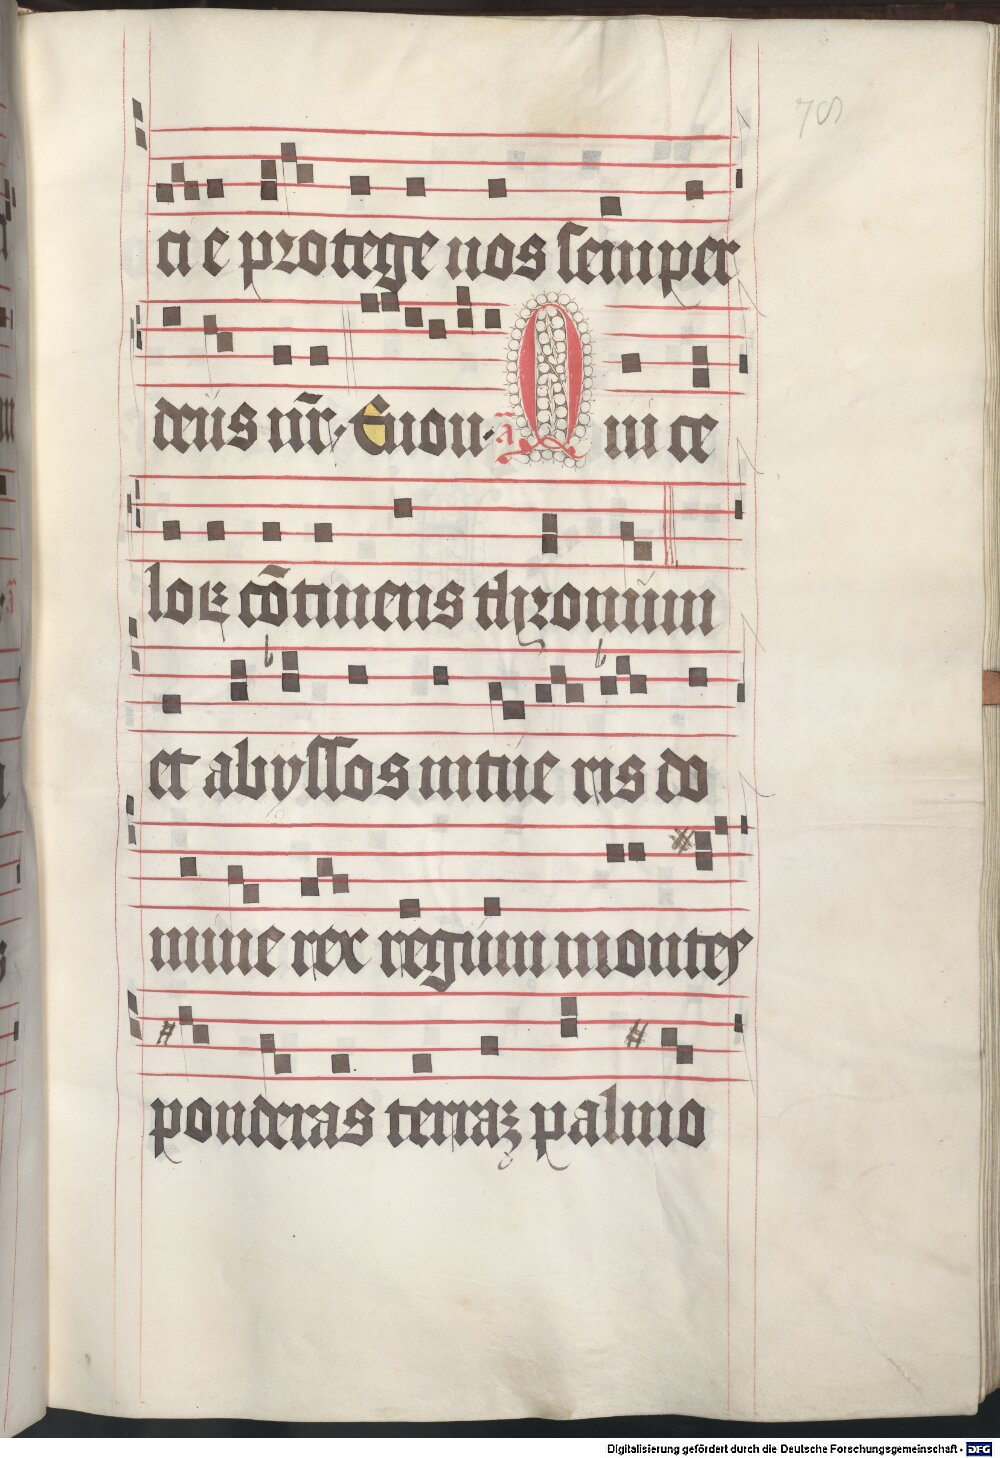 78
ti e protege nos semper
deus nr̄. Euou. a Q ui ce
loꝝ cōtinens thronum
et abyssos intue ris do
mine rex regum montes
ponderas terraz palmo
Digitalisierung gefördert durch die Deutsche Forschungsgemeinschaft - DFG